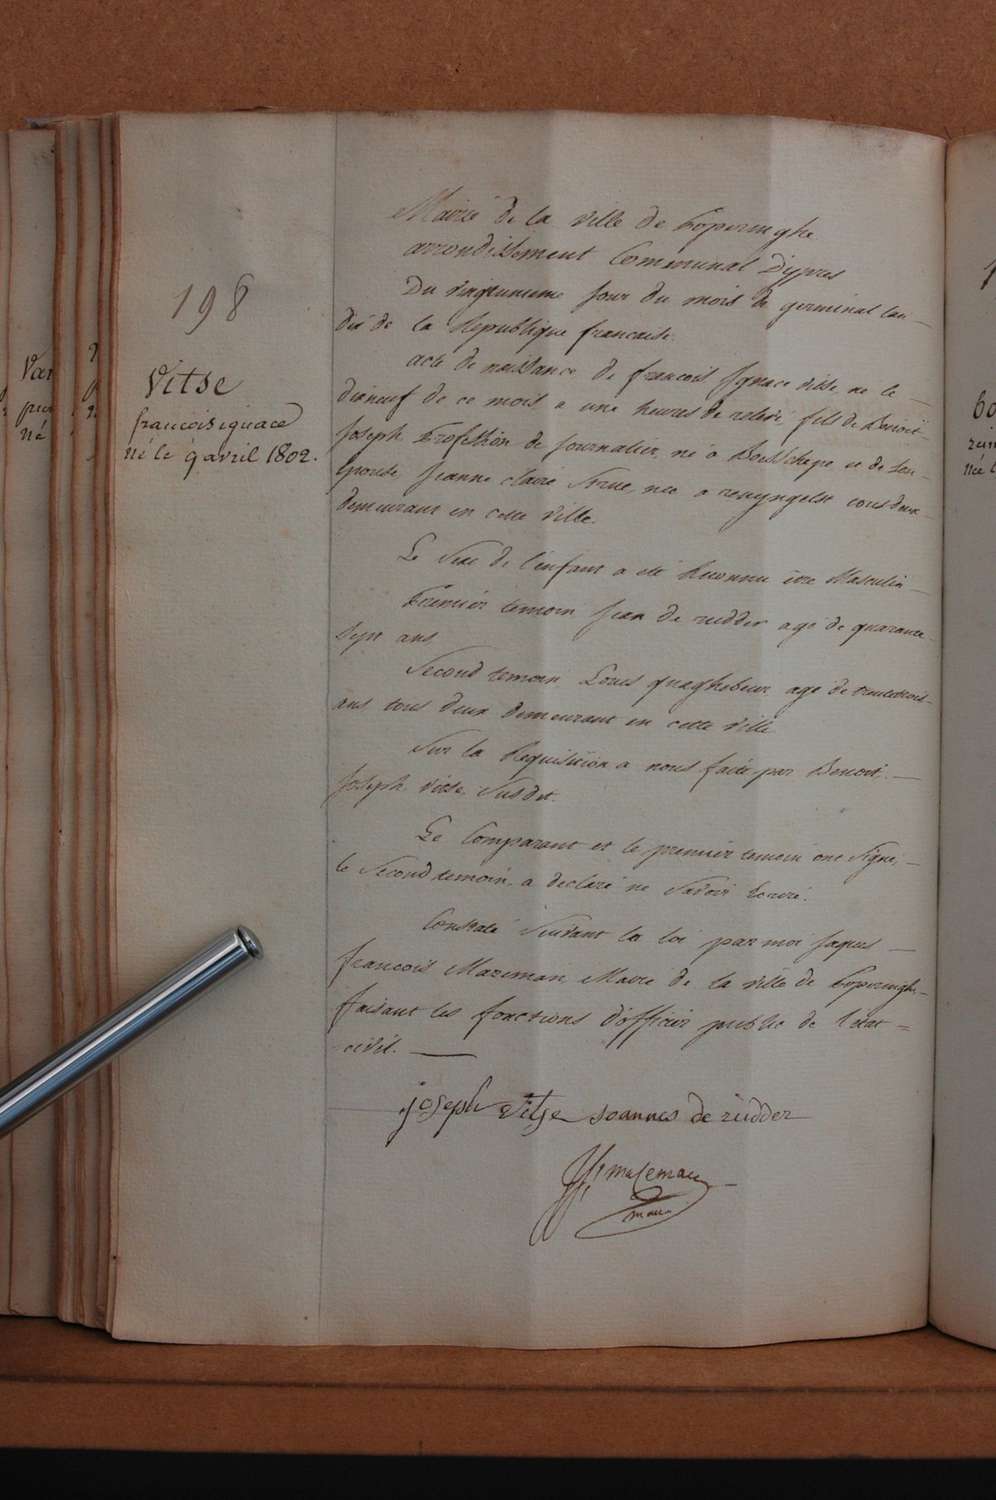 198
Vitse
francois ignace
né le 9 avril 1802.
Mairie de la ville de Poperinghe
arrondissement Communal Dypres
Du vingtunieme jour du mois de germinal lan
dix de la Republique francaise.
acte de naissance de francois Ignace vitse, ne le
dixneuf de ce mois a une heures de relevé, fils de Benoit
Joseph, Profession de journalier, né à Boesschepe et de Son
Epouse, Jeanne Claire, née a renyngelst tous deux
demeurant en cette ville.
Le Sexe de l'enfant a été Reconnu etre Masculin
Premier temoin Jean de rudder agé de quarante
sept ans
Second temoin Louis quaghebeur agé de trentetrois
ans tous deux demeurant en cette ville
Sur la Requisition a nous faite par Benoit
Joseph vitse Susdit.
Le Comparant et le premier temoin ont Signé,
le Second temoin, a declaré ne Savoir Ecrire.
Constaté Suivant la loi par moi Jaques
francois Mazeman, Maire de la ville de Poperinghe
faisant les fonctions d'officier public de l'etat
civil.
joseph vitse joannes de rudder
JF mazeman
maire
Van
né
né